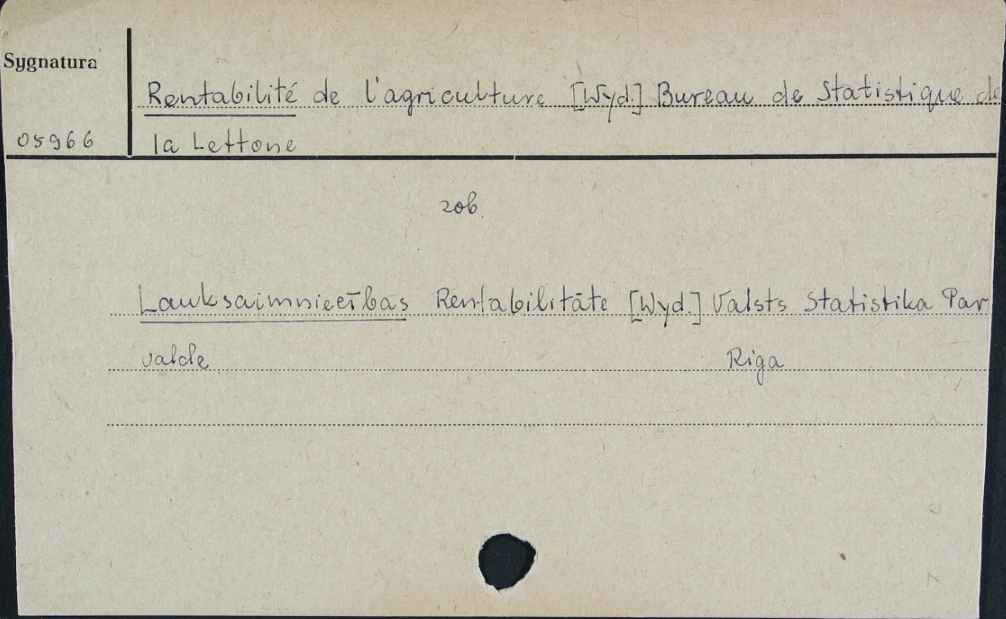 Sygnatura
Rentabilité de l'agriculture [Wyd.] Bureau de Statistique de
05966 la Lettone
zob.
Lauksaimniecības Rentabilitāte [Wyd.] Valsts Statistika Par
valde Riga